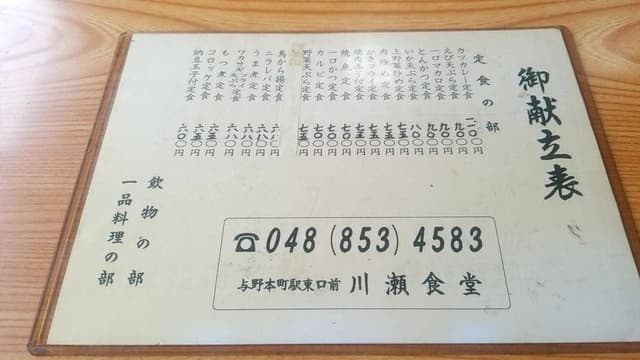 御献立表
定食の部
カツカレー定食 一、一〇〇円
えび天ぷら定食 九〇〇円
一口マカロ定食 九〇〇円
とんかつ定食 九〇〇円
いか天ぷら定食 八〇〇円
上野菜炒め定食 七五〇円
肉炒め定食 七五〇円
かきフライ定食 七五〇円
焼肉玉子付定食 七五〇円
焼魚定食 七〇〇円
一口かつ定食 七〇〇円
カルビ定食 七〇〇円
野菜天ぷら定食 七五〇円
鳥から揚定食
ニラレバ定食 六八〇円
うま煮定食 六八〇円
ワカサギフライ天ぷら定食
もつ煮定食 六八〇円
コロッケ定食 六五〇円
納豆玉子付定食 六〇〇円
飲物の部
一品料理の部
☎048(853)4583
与野本町駅東口前 川瀬食堂